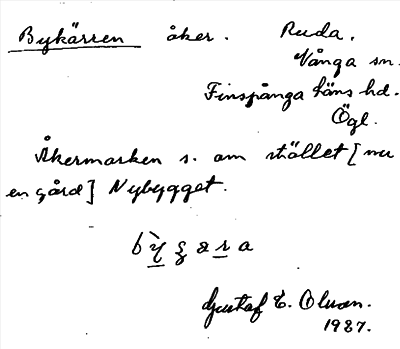 Bykärren åker. Ruda.
Vånga sn.
Finspånga läns hd.
Ögl.
Åkermarken s. om stället [nu
en gård] Nybygget.
Gustaf E. Olson.
1927.